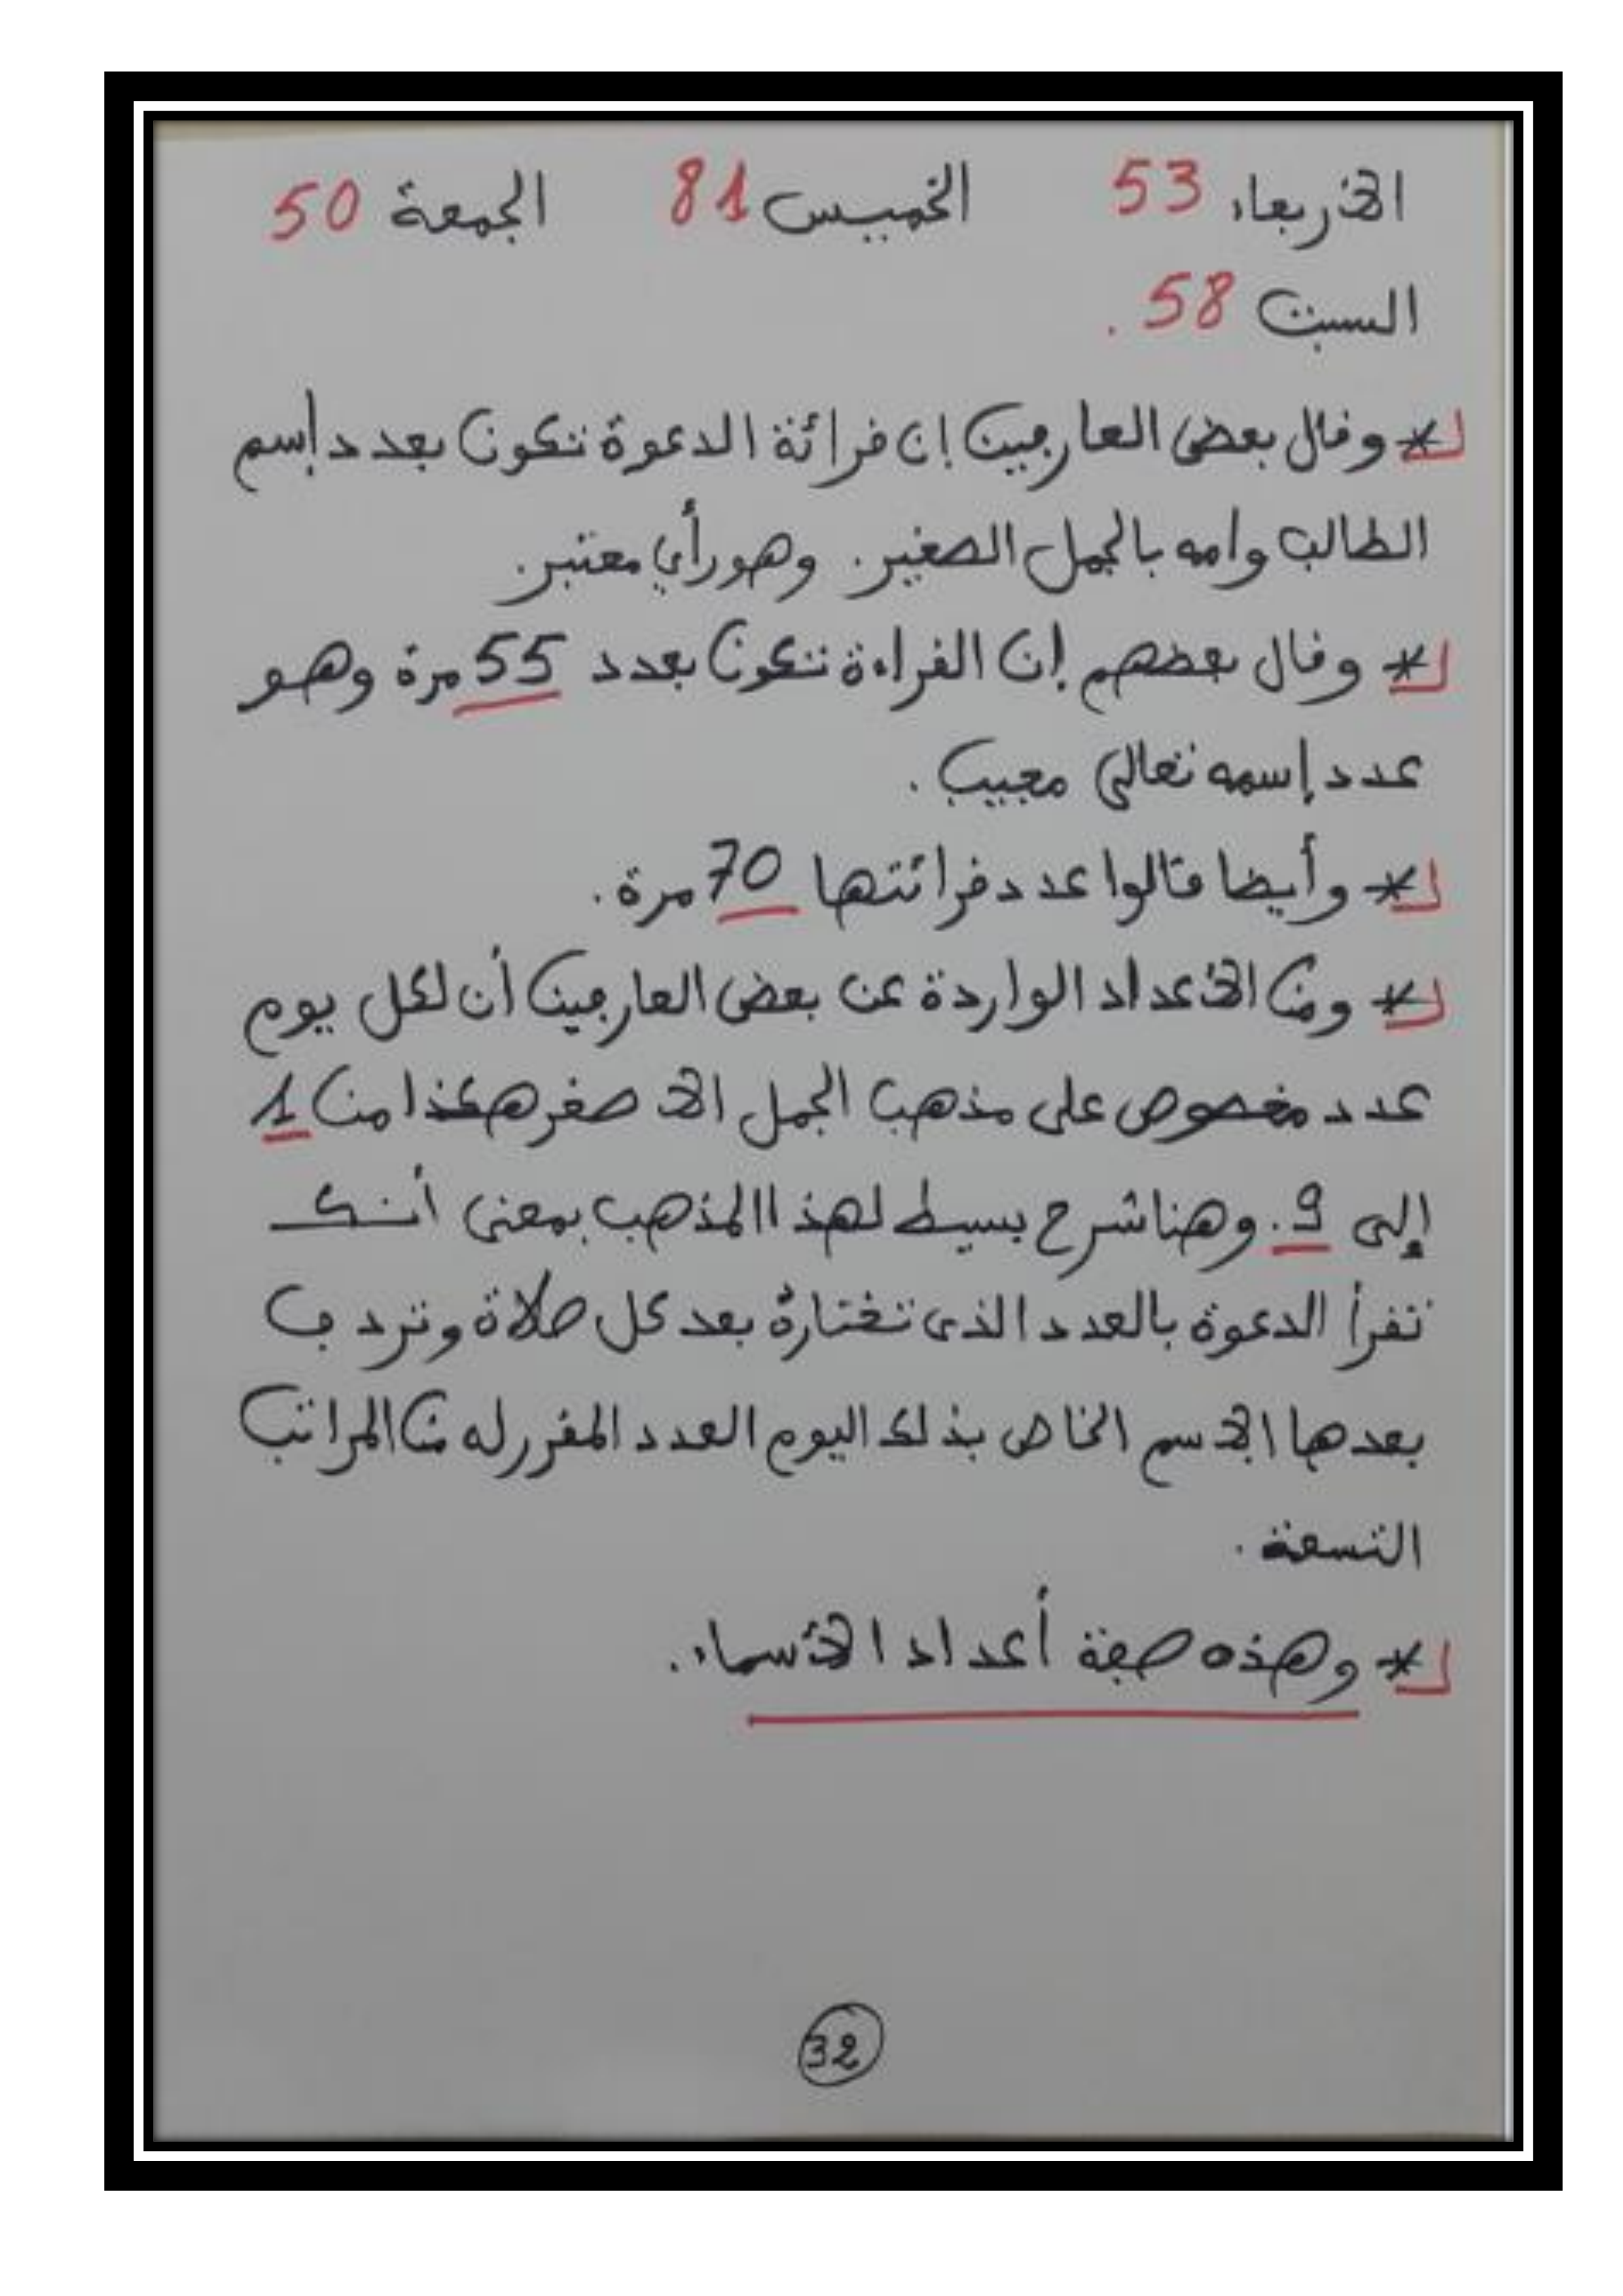 الأربعاء 53 الخميس 81 الجمعة 50
السبت 58.
* وقال بعض العارفين إن قرائة الدعوة تكون بعدد إسم
الطالب وامه بالجمل الصغير. وهو رأي معتبر.
* وقال بعضهم إن القراءة تكون بعدد 55 مرة وهو
عدد إسمه تعالى مجيب.
* وأيضا قالوا عدد قرائتها 70 مرة.
* ومن الأعداد الواردة عن بعض العارفين أن لكل يوم
عدد مخصوص على مذهب الجمل الاصغر هكذا من 1
إلى 9. وهنا شرح بسيط لهذا المذهب بمعنى أنك
تقرأ الدعوة بالعدد الذي تختاره بعد كل صلاة وتردف
بعدها الاسم الخاص بذلك اليوم العدد المقرر له من المراتب
التسعة.
* وهذه صفة أعداد الأسماء.
32